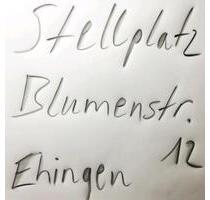 Stellplatz
Blumenstr.
12
Ehingen